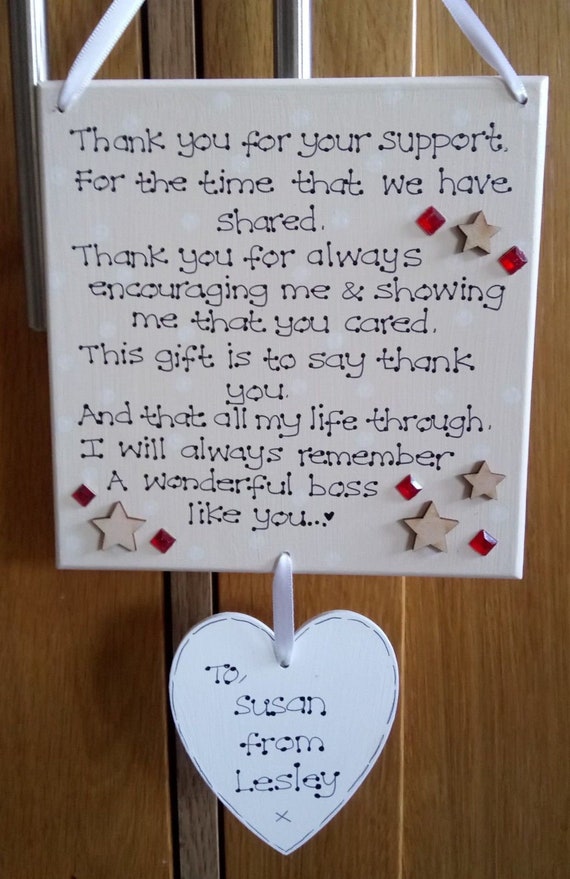 Thank you for your support.
For the time that we have
shared.
Thank you for always
encouraging me & showing
me that you cared.
This gift is to say thank
you.
And that all my life through.
I will always remember
A wonderful boss
like you...♥
To,
Susan
from
Lesley
x